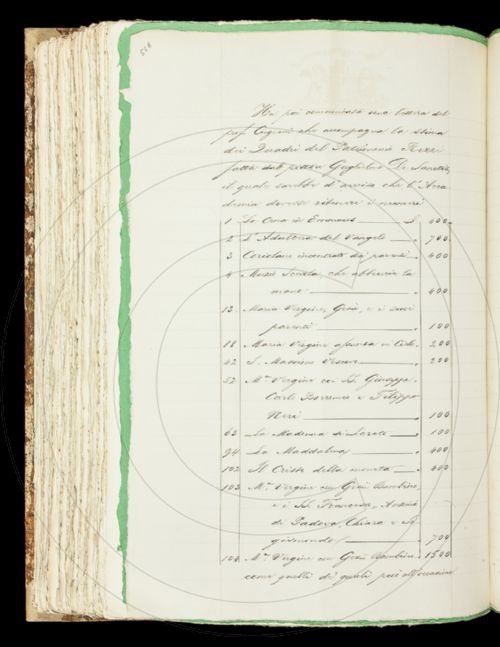 Ha poi comunicato una lettera del
prof. Cugnoni che accompagna la stima
dei Quadri del Palazzino Rezzi
fatta dal pittore Guglielmo De Sanctis,
il quale sarebbe di avviso che l'Acca
demia dovesse ritenere i numeri
1 La Cena in Emmaus 400
2 L'Adultera del Vangelo 700
3 Coriolano incontrato dai parenti 400
4 Muzio Scevola, che abbrucia la
mano 400
13. Maria Vergine, Gesù, e i suoi
parenti 100
18 Maria Vergine assunta in Cielo. 200
42 S. 200
52 M.a Vergine con SS. Giuseppe,
Carlo Borromeo e Filippo
Neri 100
63 La Madonna di Loreto 100
94 La Maddalena 400
102 Il Cristo della moneta 400
103 M.a Vergine con Gesù Bambino,
e i SS. Francesco, Antonio
di Padova, Chiara e
700
104 M.a Vergine con Gesù Bambino. 1500
come quelli di questi può